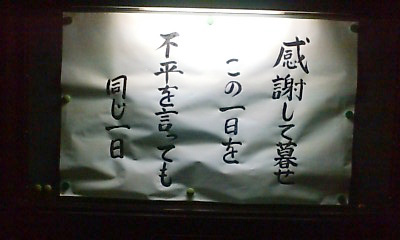 感謝して暮せ
この一日を
不平を言っても
同じ一日